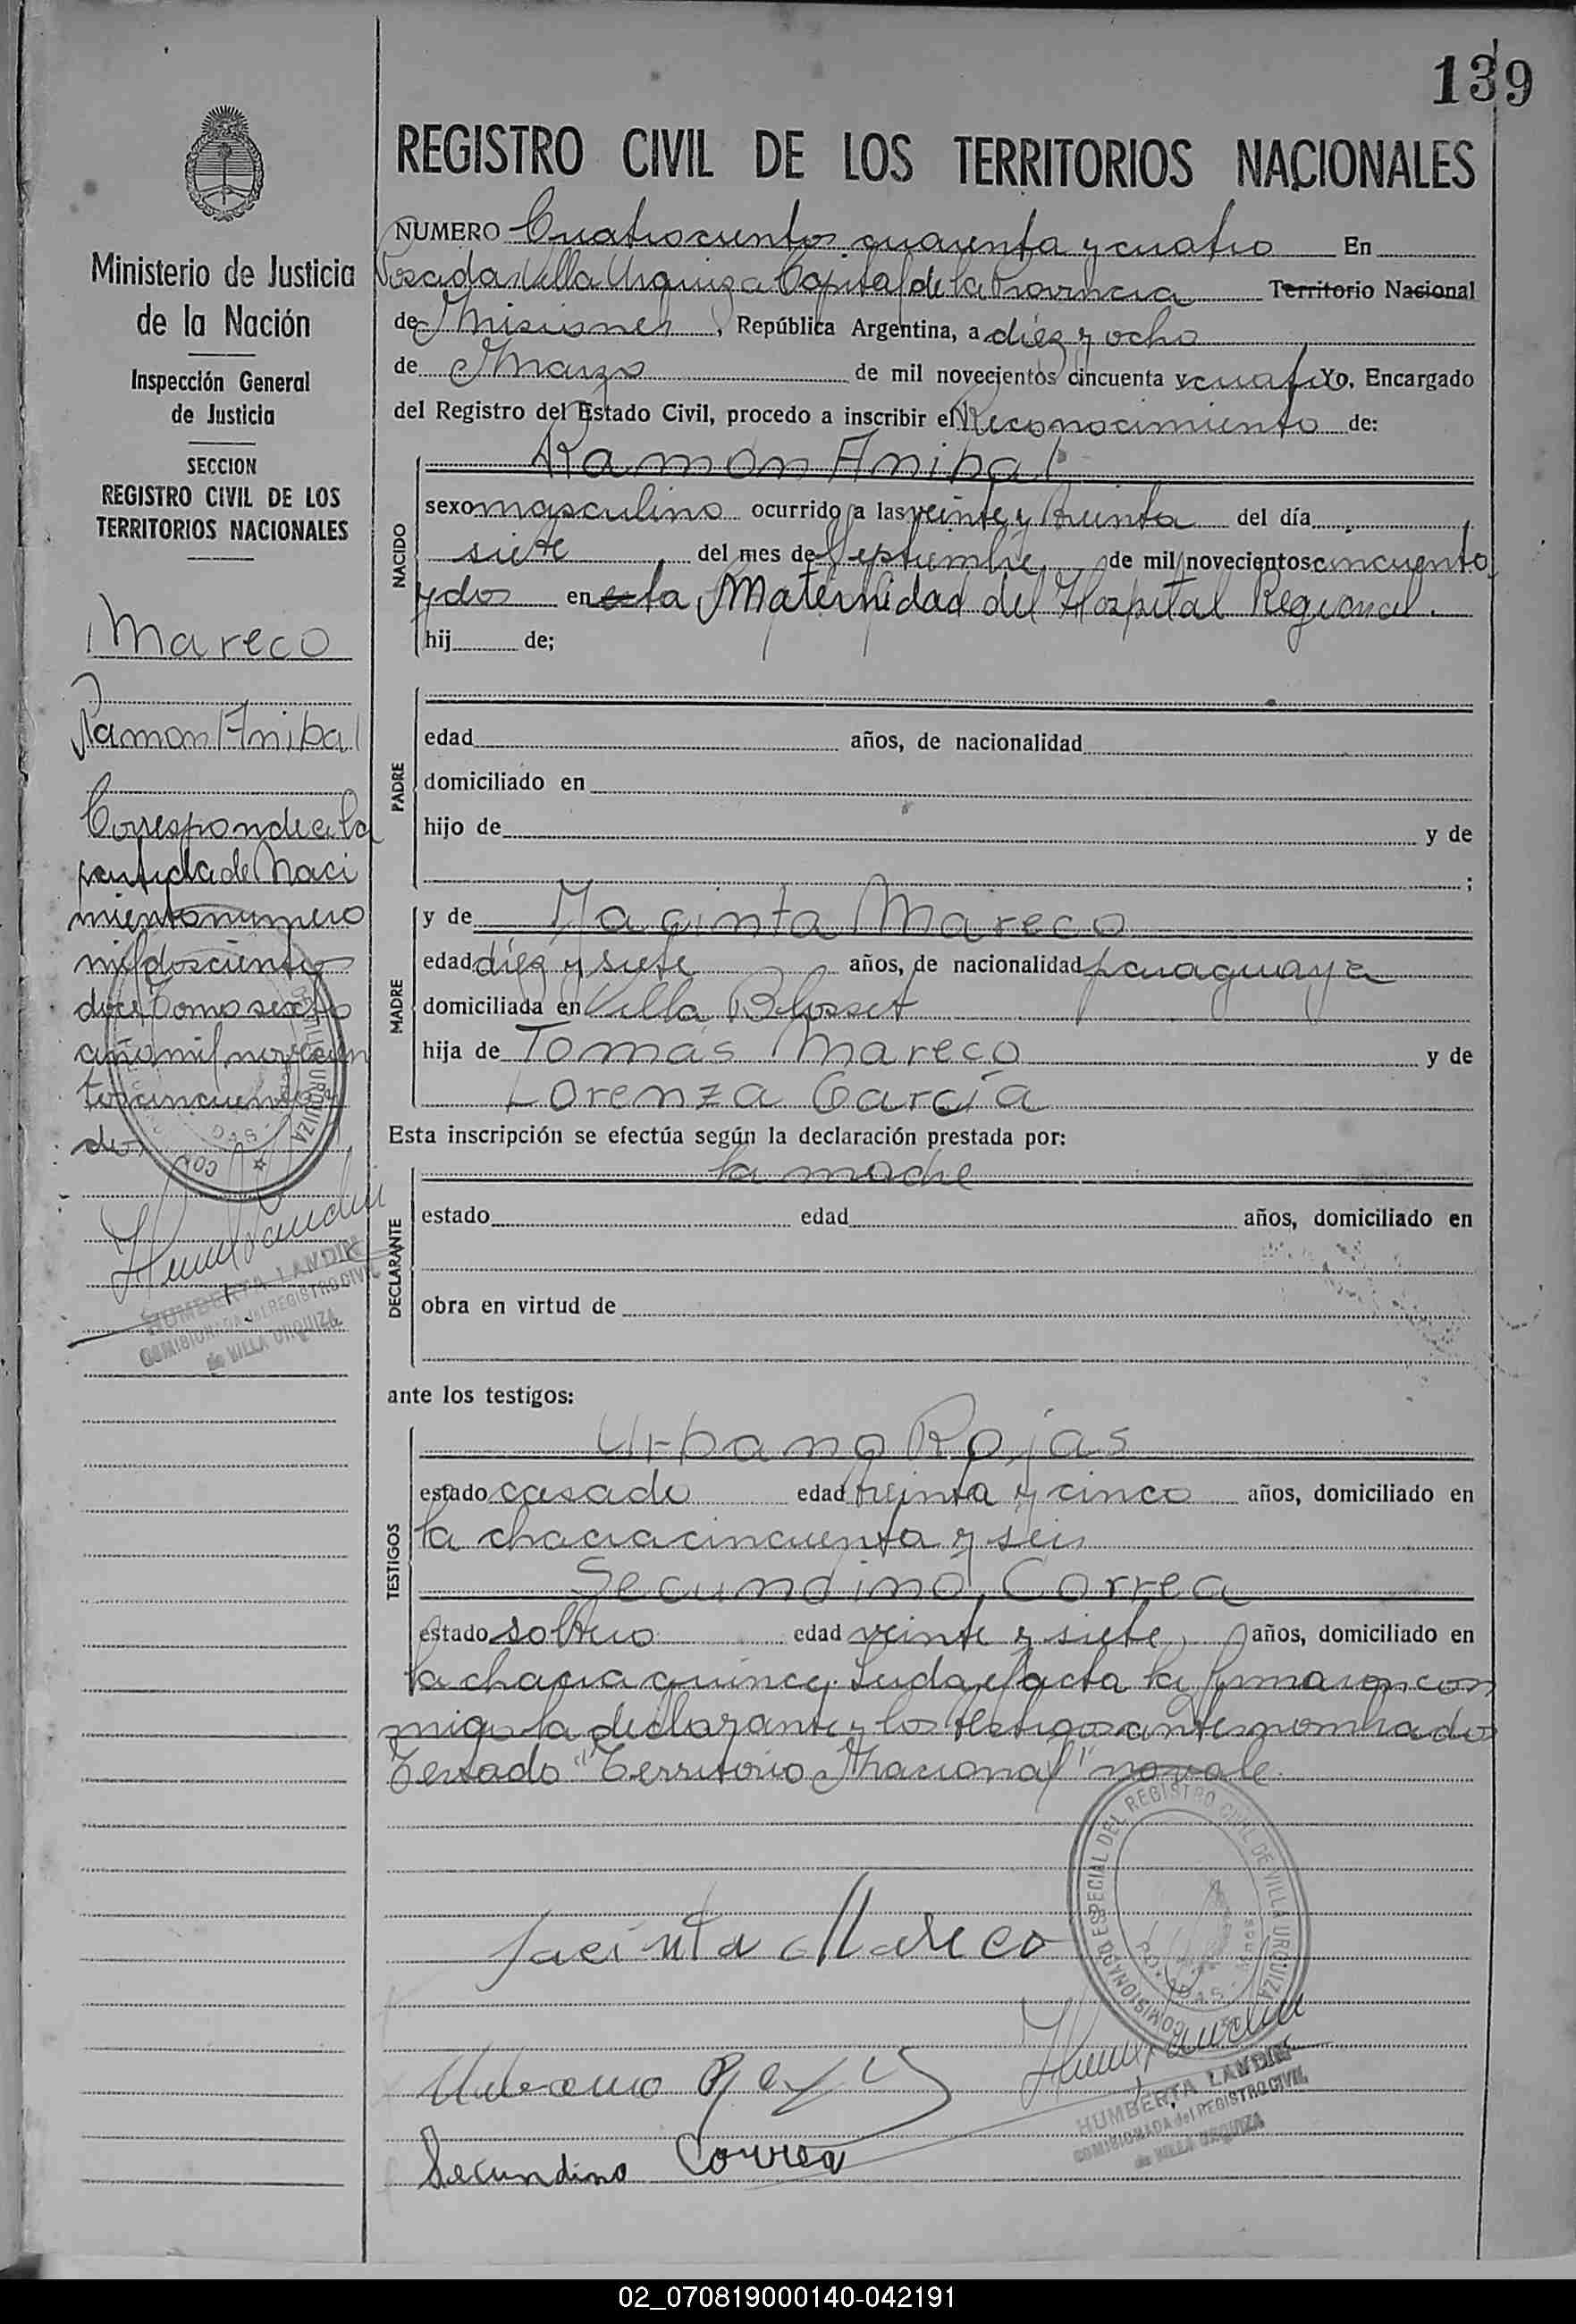 139
REGISTRO CIVIL DE LOS TERRITORIOS NACIONALES
Ministerio de Justicia
de la Nación
Inspección General
de Justicia
SECCION
REGISTRO CIVIL DE LOS
TERRITORIOS NACIONALES
Mareco
Ramon Anibal
Corresponde a la
partida de Naci
miento numero
mil doscientos
doce Tomo sexto
año mil novecien
tos cincuenta y
dos
HUMBERTA LANDIN
COMISIONADA del REGISTRO CIVIL
de VILLA URQUIZA
NUMERO Cuatrocientos cuarenta y cuatro En
Posadas Villa Urquiza Capital de la Provincia Territorio Nacional
de Misiones, República Argentina, a diez y ocho
de Marzo de mil novecientos cincuenta y cuatro Yo, Encargado
del Registro del Estado Civil, procedo a inscribir el Reconocimiento de:
Ramon Anibal
NACIDO
sexo masculino ocurrido a las veinte y treinta del día
siete del mes de Septiembre de mil novecientos cincuenta
y dos en esta Maternidad del Hospital Regional.
hij de;
PADRE
edad años, de nacionalidad
domiciliado en
hijo de y de
;
MADRE
y de Jacinta Mareco
edad diez y siete años, de nacionalidad paraguaya
domiciliada en Villa Blosset
hija de Tomas Mareco y de
Lorenza García
Esta inscripción se efectúa según la declaración prestada por:
la madre
DECLARANTE
estado edad años, domiciliado en
obra en virtud de
ante los testigos:
TESTIGOS
Urbano Rojas
estado casado edad treinta y cinco años, domiciliado en
la chacra cincuenta y seis
Secundino Correa
estado soltero edad veinte y siete años, domiciliado en
la chacra quince. Leida el acta la firmaron con
migo la declarante y los testigos antes nombrados
Testado "Territorio Nacional" no vale.
COMISIONADO ESPECIAL DEL REGISTRO CIVIL DE VILLA URQUIZA
POSADAS
Jacinta Mareco
Urbano Rojas
HUMBERTA LANDIN
COMISIONADA del REGISTRO CIVIL
de VILLA URQUIZA
Secundino Correa
02_070819000140-042191